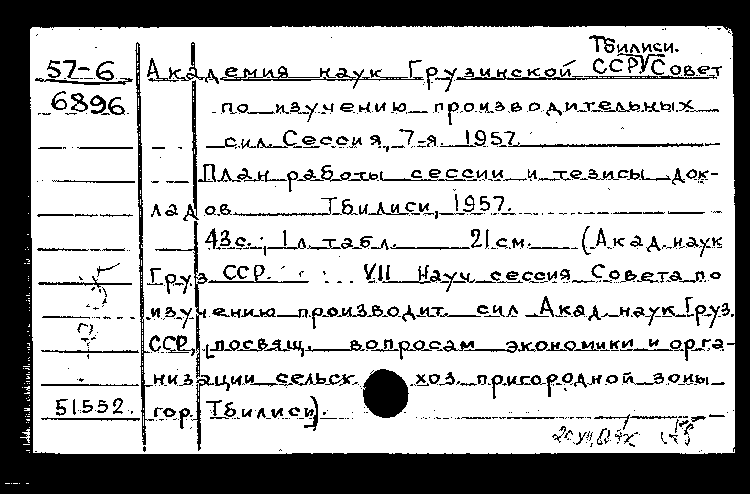 Тбилиси.
57-6 Академия наук Грузинской ССР. Совет
6896 по изучению производительных
сил. Сессия, 7-я. 1957.
План работы сессии и тезисы док-
ладов. Тбилиси, 1957.
43с.; 1л. табл. 21см. (Акад. наук
Груз ССР. VII Науч сессия Совета по
изучению производит. сил Акад. наук Груз.
ССР, посвящ. вопросам экономики и орга-
низации сельск. хоз. пригородной зоны
51552. гор. Тбилиси).